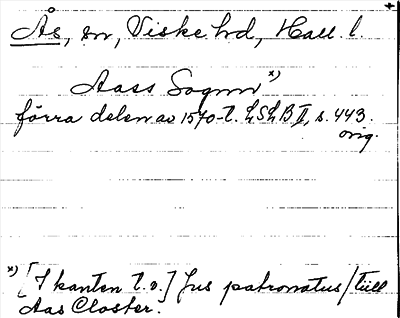 Ås, sn, Viske hd, Hall. l.
Aass Sognn *)
förra delen av 1570-t. LSLB II, s. 443.
orig.
*) [I kanten t.v.] Jus patronatus/till
Aas Closter.